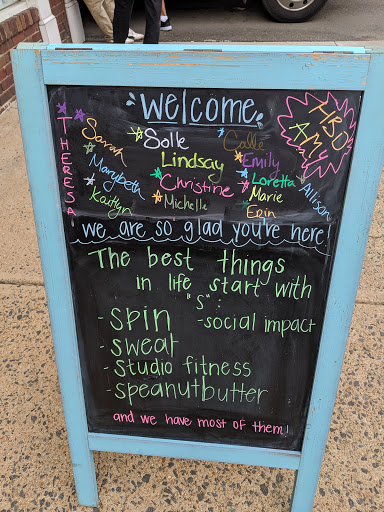 welcome
THERESA
Sarah
Marybeth
Kaitlyn
Solle
Lindsay
Christine
Michelle
Calle
Emily
Loretta
Marie
Erin
Allison
HBD
AMY
we are so glad you're here!
The best things
in life start with
"S":
- spin
- social impact
- sweat
- studio fitness
- speanutbutter
and we have most of them!